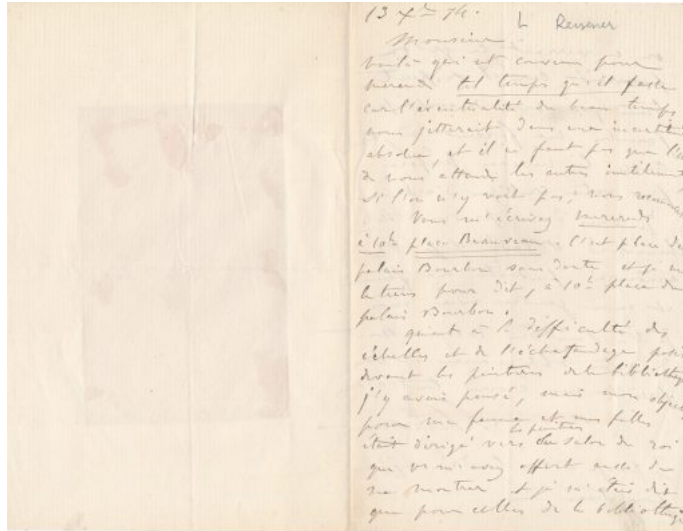 13 Xbre 74.
L Riesener
Monsieur
voilà qui est convenu pour
mercredi tel temps qu'il fasse
car l'éventualité du beau temps
nous jetterait dans une incertit
absolue, et il ne faut pas que l'
de nous attende les autres inutilement
si l'on n'y voit pas, nous
Vous m'écrivez mercredi
à 10h place Beauveau. C'est place du
palais Bourbon sans doute et je
le tiens pour dit, à 10h place du
palais Bourbon.
quant à la difficulté des
échelles et de l'échafaudage
devant les peintures de la biblioth
j'y avais pensé, mais mon objec
pour ma femme et mes filles
les peintures
était dirigé vers du salon du roi
que vs m'avez offert aussi de
me montrer et je m'étais dit
que pour celles de la biblioth